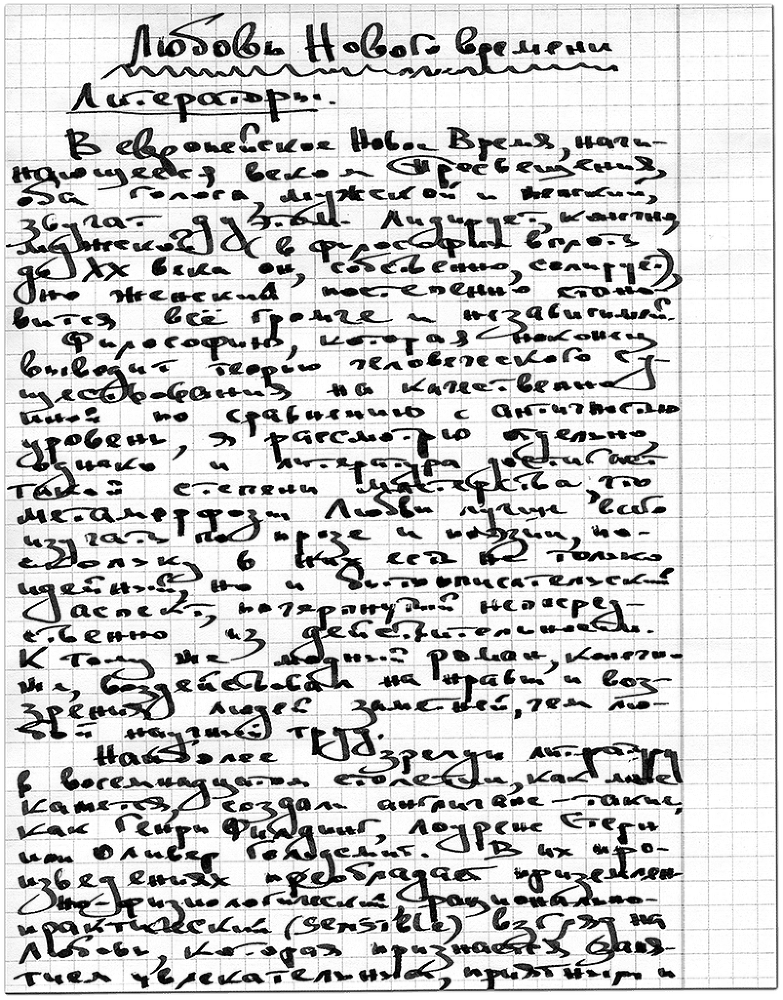 Любовь Нового времени
Литераторы.
В европейское Новое Время, начи-
нающееся веком Просвещения,
оба голоса, мужской и женский,
звучат дуэтом. Лидирует, конечно,
мужской (в философии вплоть
до XX века он, собственно, солирует),
но женский постепенно стано-
вится всё громче и независимей.
Философию, которая наконец
выводит теорию человеческого су-
ществования на качественно
иной по сравнению с античностью
уровень, я рассмотрю отдельно,
однако и литература достигает
такой степени мастерства, что
метаморфозы Любви лучше всего
изучать по прозе и поэзии, по-
скольку в них есть не только
идейный, но и бытописательский
аспект, почерпнутый непосред-
ственно из действительности.
К тому же модный роман, конечно
же, воздействовал на нравы и воз-
зрения людей заметней, чем лю-
бой научный труд.
Наиболее зрелую литературу
в восемнадцатом столетии, как мне
кажется, создали англичане – такие,
как Генри Филдинг, Лоуренс Стерн
или Оливер Голдсмит. В их про-
изведениях преобладает приземлен-
но-физиологический, рационально-
практический (sensible) взгляд на
Любовь, которая признаётся заня-
тием увлекательным, приятным и